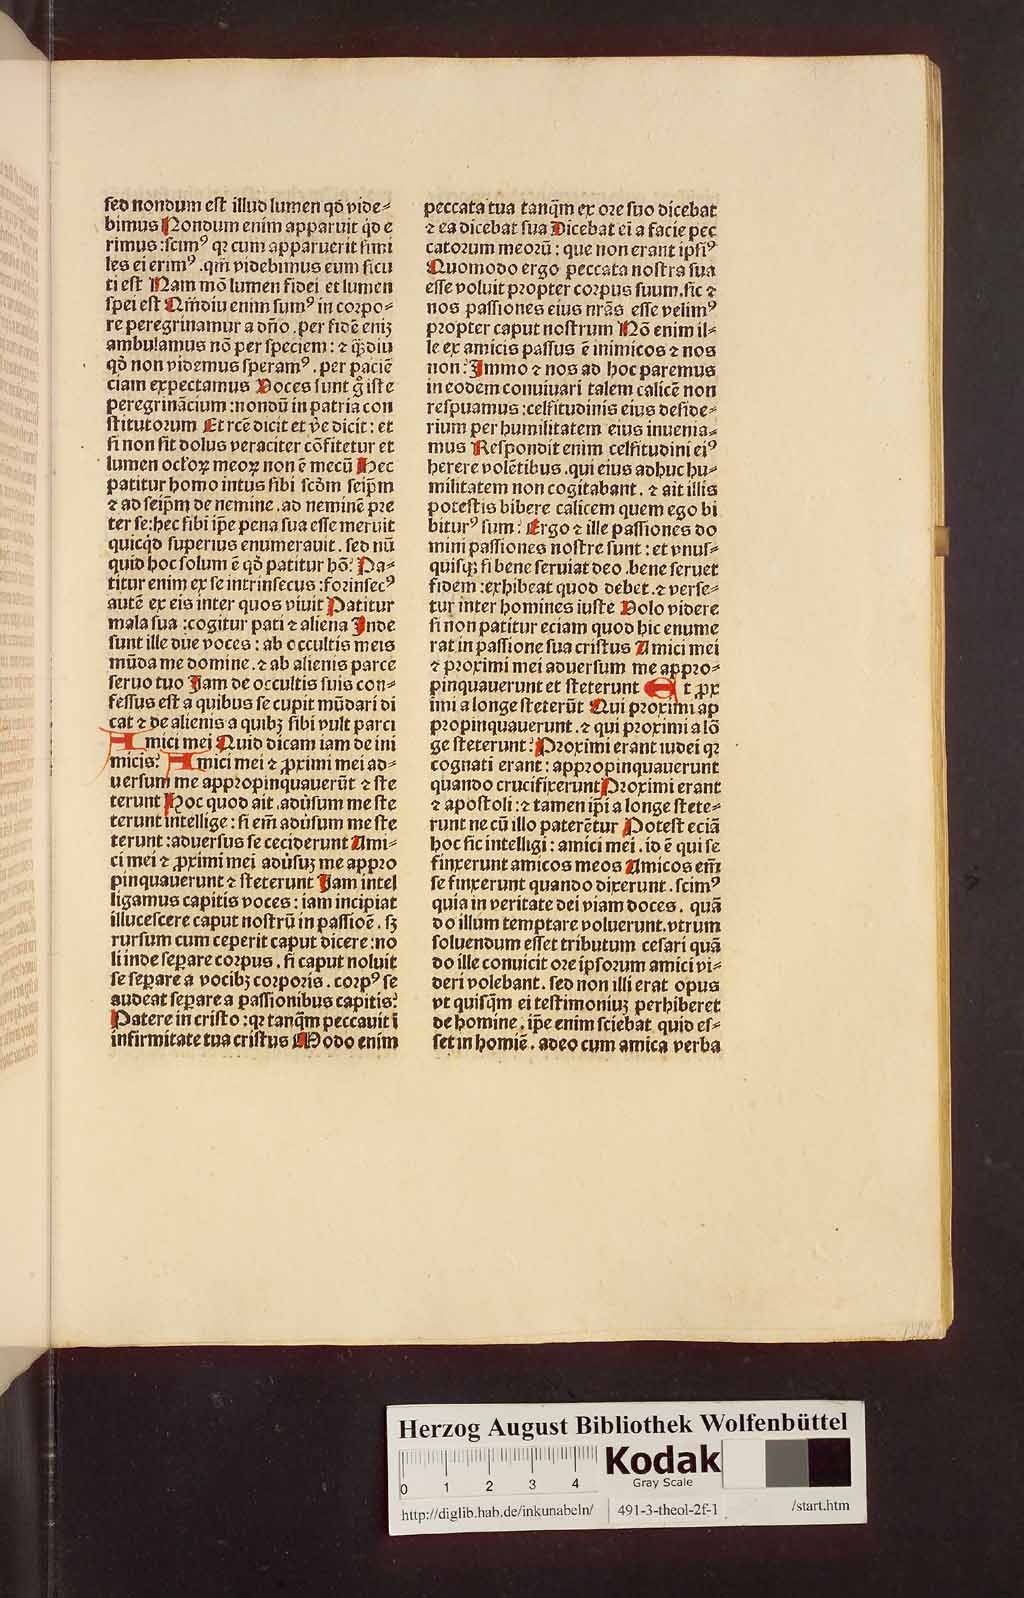 sed nondum est illud lumen qd̓ vide⸗
bimus Nondum enim apparuit qd̓ e
rimus :scimꝰ qꝛ cum apparuerit simi
les ei erimꝰ .qm̄ videbimus eum sicu
ti est Nam mō lumen fidei et lumen
spei est Qm̄diu enim sumꝰ in corpo⸗
re peregrinamur a dn̄o . per fidē eniꝫ
ambulamus nō per speciem : ⁊ qm̄diu
qd̓ non videmus speramꝰ . per paciē
ciam expectamus Voces sunt gͥ iste
peregrinācium :nondū in patria con
stitutorum Et rcē dicit et ve̓ dicit : et
si non sit dolus veraciter cōfitetur et
lumen oclo̓ꝝ meoꝝ non ē mecū Hec
patitur homo intus sibi scd̓m seip̄m
⁊ ad seip̄m de nemine .ad neminē pre
ter se :hec sibi ip̄e pena sua esse meruit
quicqd̓ superius enumerauit . sed nū
quid hoc solum ē qd̓ patitur hō? Pa⸗
titur enim ex se intrinsecus :forinsecꝰ
autē ex eis inter quos viuit Patitur
mala sua :cogitur pati ⁊ aliena Inde
sunt ille due voces : ab occultis meis
mūda me domine .⁊ ab alienis parce
seruo tuo Iam de occultis suis con⸗
fessus est a quibus se cupit mūdari di
cat ⁊ de alienis a quibꝫ sibi vult parci
Amici mei Quid dicam iam de ini
micis? Amici mei ⁊ ꝓximi mei ad⸗
uersum me appropinquauerūt ⁊ ste
terunt Hoc quod ait .adu̓sum me ste
terunt intellige : si em̄ adu̓sum me ste
terunt :aduersus se ceciderunt Ami⸗
ci mei ⁊ ꝓximi mei adu̓suꝫ me appro
pinquauerunt ⁊ steterunt Iam intel
ligamus capitis voces : iam incipiat
illucescere caput nostrū in passiōe . sꝫ
rursum cum ceperit caput dicere :no
li inde sep̱are corpus . si caput noluit
se sep̱are a vocibꝫ corporis . corpꝰ se
audeat sep̱are a passionibus capitis?
Patere in cristo :qꝛ tanqm̄ peccauit ī
infirmitate tua cristus Modo enim
peccata tua tanqm̄ ex ore suo dicebat
⁊ ea dicebat sua Dicebat ei a facie pec
catorum meorū : que non erant ipsiꝰ
Quomodo ergo peccata nostra sua
esse voluit propter corpus suum .sic ⁊
nos passiones eius nrās esse velimꝰ
propter caput nostrum Nō enim il⸗
le ex amicis passus ē inimicos ⁊ nos
non? Immo ⁊ nos ad hoc paremus
in eodem conuiuari talem calicē non
respuamus :celsitudinis eius deside⸗
rium per humilitatem eius inuenia⸗
mus Respondit enim celsitudini eiꝰ
herere volētibus .qui eius adhuc hu⸗
militatem non cogitabant . ⁊ ait illis
potestis bibere calicem quem ego bi
biturꝰ sum? Ergo ⁊ ille passiones do
mini passiones nostre sunt : et vnus⸗
quisqꝫ si bene seruiat deo .bene seruet
fidem :exhibeat quod debet .⁊ verse⸗
tur inter homines iuste Volo videre
si non patitur eciam quod hic enume
rat in passione sua cristus Amici mei
⁊ proximi mei aduersum me appro⸗
pinquauerunt et steterunt Et ꝓx
imi a longe steterūt Qui proximi ap
propinquauerunt .⁊ qui proximi a lō
ge steterunt? Proximi erant iudei qꝛ
cognati erant : appropinquauerunt
quando crucifixerunt Proximi erant
⁊ apostoli : ⁊ tamen ip̄i a longe stete⸗
runt ne cū illo paterētur Potest eciā
hoc sic intelligi : amici mei . id ē qui se
finxerunt amicos meos Amicos em̄
se finxerunt quando dixerunt . scimꝰ
quia in veritate dei viam doces . quā
do illum temptare voluerunt .vtrum
soluendum esset tributum cesari quā
do ille conuicit ore ipsorum amici vi⸗
deri volebant . sed non illi erat opus
vt quisqm̄ ei testimoniuꝫ perhiberet
de homine . ip̄e enim sciebat quid es⸗
set in homiē . adeo cum amica verba
Herzog August Bibliothek Wolfenbüttel
0 1 2 3 4
Kodak
Gray Scale
http://diglib.hab.de/inkunabeln/ 491-3-theol-2f-1 /start.htm